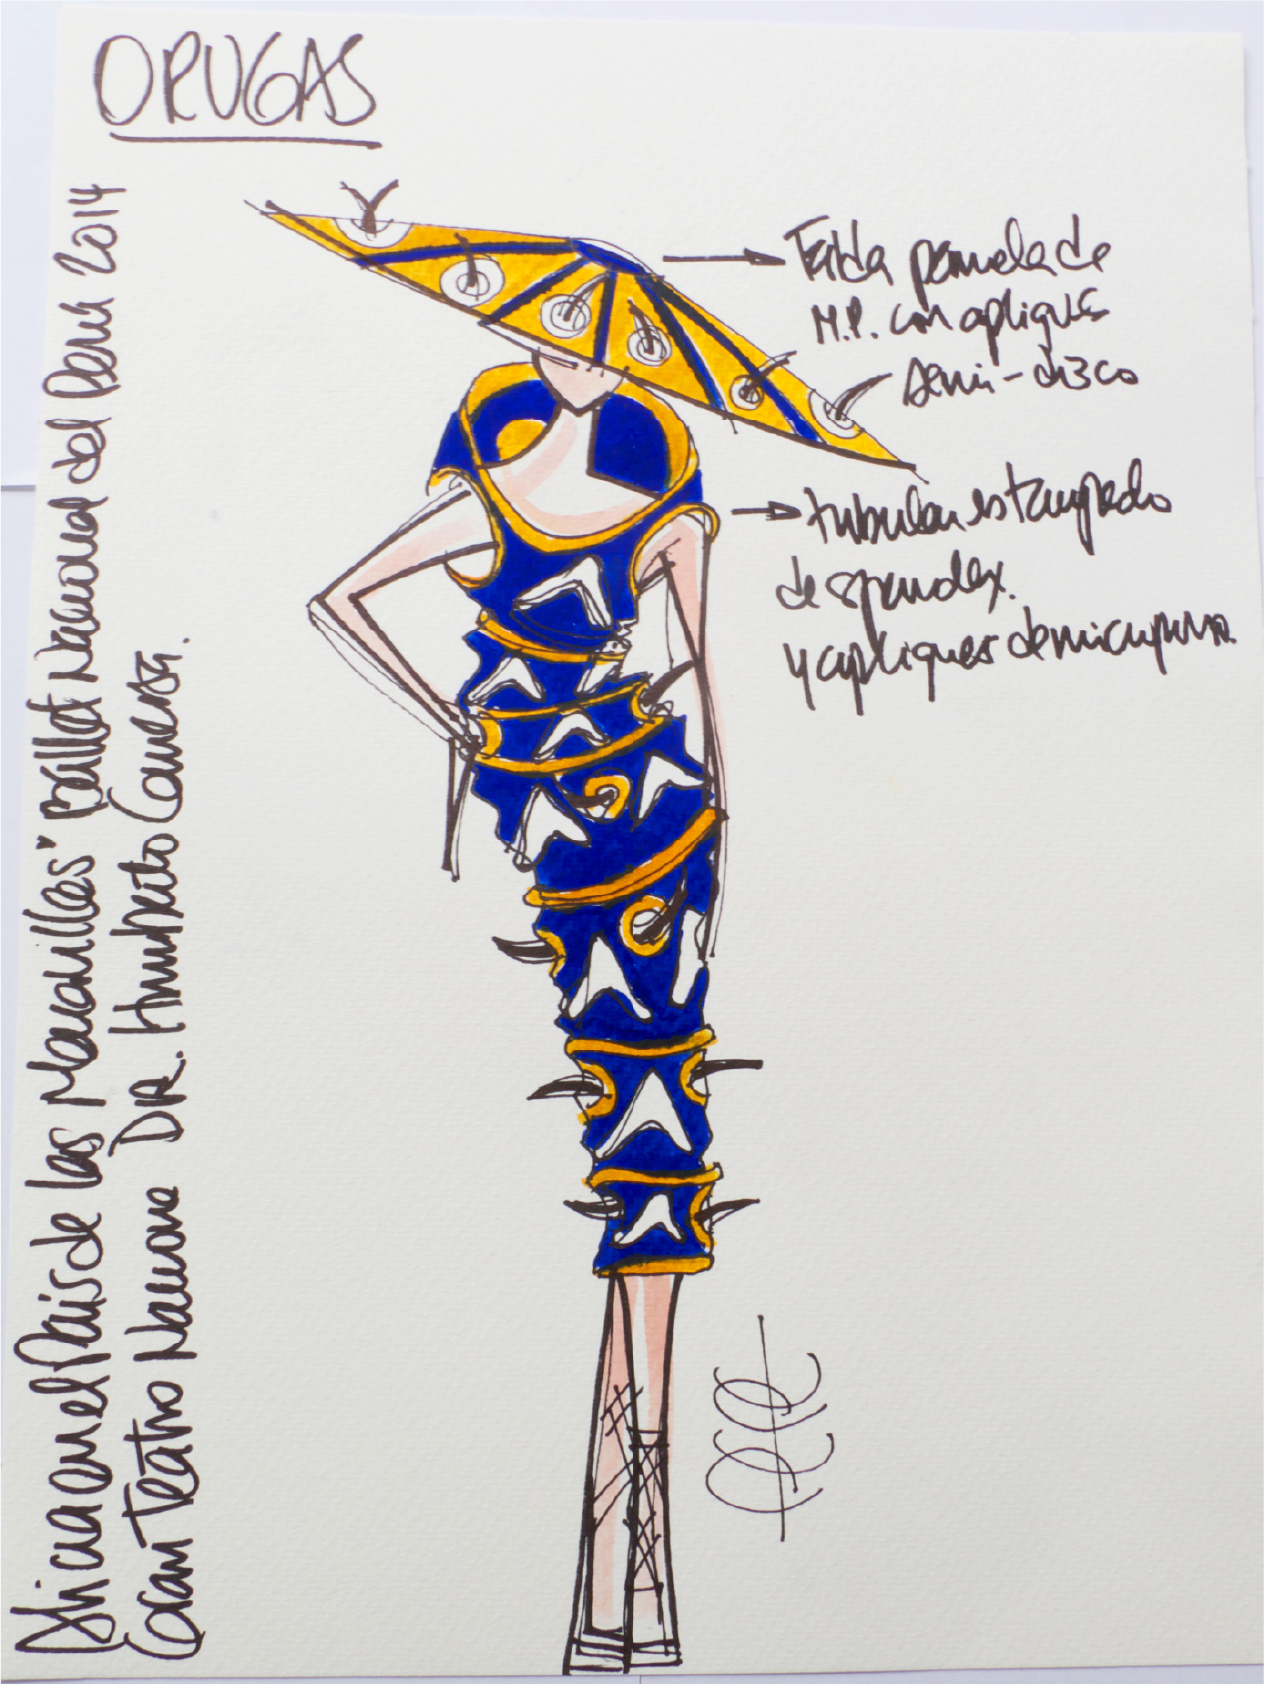 ORUGAS
Alicia en el País de las Maravillas" Ballet Nacional del Perú 2014
Gran Teatro Nacional DR. Humberto Canessa.
Falda pamela de
M.P. con apliques
semi-disco
tubular estampado
de spandex.
y apliques de